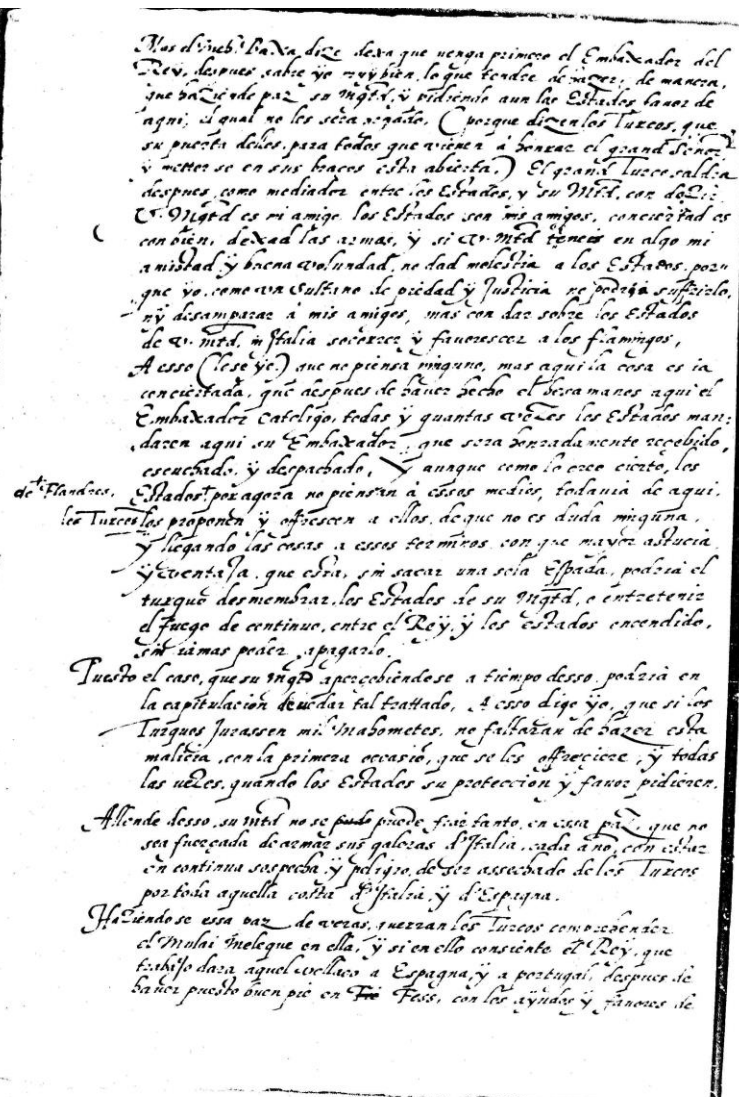 Mas el Meh: Baxa dize dexa que uenga primero el Embaxador del
Rey, despues sabre yo muy bien, lo que tendre de hazer, de manera,
que haziende paz su Mgtd, y pidiendo aun los Estados fauor de
aqui, il qual no les sera negado, (porque dizen los Turcos, que
su puerta dellos, para todos que vienen à honrar el grand Señor
y metter se en sus braces esta abierta.) El grand Turco saldra
despues, como mediador entre los Estados, y su Mtd, con dezir
V. Mgtd es mi amigo, los Estados son mis amigos, concertad os
con bien, dexad las armas, y si V. mtd teneis en algo mi
amistad y buena voluntad, no dad molestia a los Estados, por=
que yo, como vn Sultano de piedad y Justicia no podria suffrirlo,
ny desamparar à mis amigos, mas con dar sobre los Estados
de V. mtd, in Italia socorrer y fauorescer a los flamingos,
A esso (lo se yo) que no piensa ninguno, mas aqui la cosa es ia
concertada, que despues de hauer hecho el besamanos aqui el
Embaxador Catoligo, todas y quantas vezes los Estados man=
daren aqui su Embaxador, que sera honradamente recebido,
escuchado, y despachado, Y aunque como lo creo cierto, los
de Flandres, Estados por agora no piensan à essos medios, todauia de aqui,
los Turcos los proponen y offrescen a ellos, de que no es duda ninguna,
y llegando las cosas a essos terminos, con que mayor astucia
y ventaja, que esta, sin sacar una sola Espada, podria el
turquo desmembrar, los Estados de su Mgtd, o entretenir
el fuego de continuo, entre el Rey, y los estados encendido,
sin iamas poder apagarlo.
Puesto el caso, que su Mgtd apercebiendose a tiempo desso, podria en
la capitulacion deuedar tal trattado, A esso digo yo, que si los
Turquos Jurassen mil Mahometes, no faltarian de hazer esta
malicia, con la primera occasiõ, que se les offreciere, y todas
las vezes, quando los Estados su proteccion y fauor pidieren.
Allende desso, su mtd no se pudo puede fiar tanto, en essa paz, que no
sea fuerçada de armar sus galeras d'Italia, cada año, con estar
en continua sospecha, y peligro, de ser assechado de los Turcos
por toda aquella costa d'Italia, y d'Espagna.
Haziendose essa paz de veras, querran los Turcos comprehender
el Mulai Meleque en ella, y si en ello consiente el Rey, que
trabajo dara aquel vellaco a Espagna, y a portugal, despues de
hauer puesto buen pie en Fess, con los ayudos y fauores de